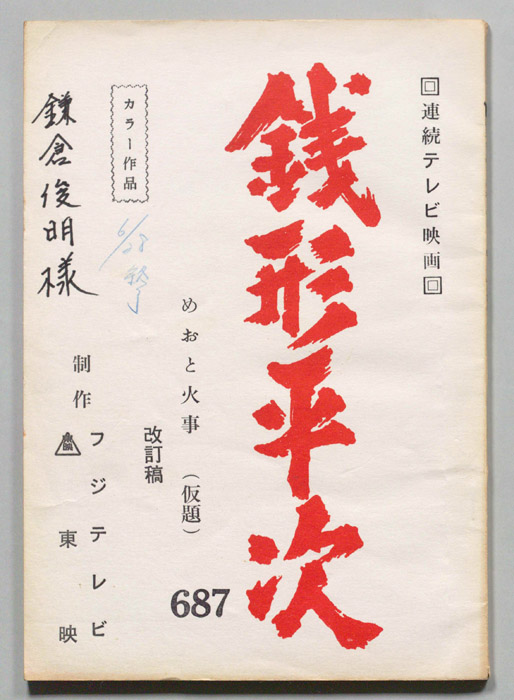 回連続テレビ映画回
銭形平次
めおと火事（仮題）
改訂稿
687
カラー作品
6/28 終了
鎌倉俊明様
制作
フジテレビ
東映